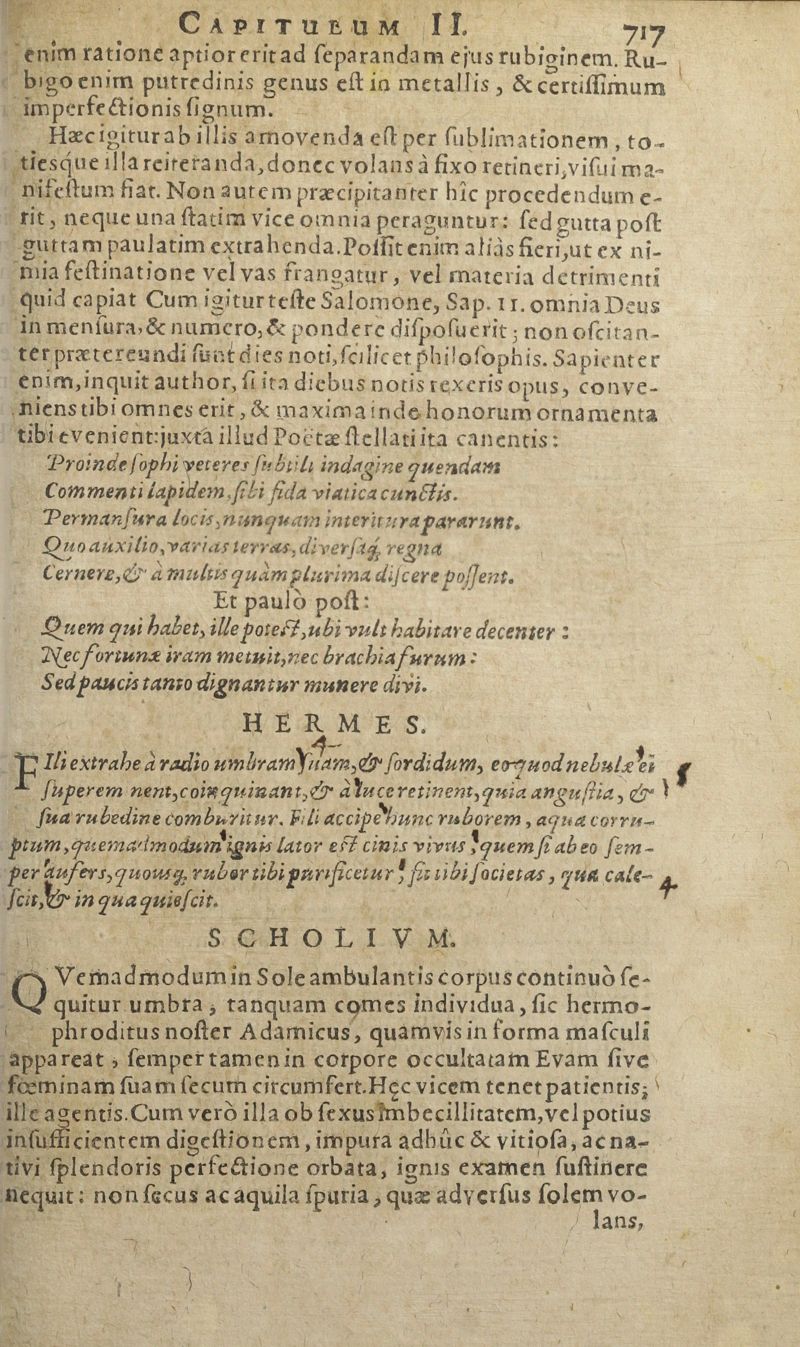 CAPITULUM II. 717
enim ratione aptior erit ad ſeparandam ejus rubiginem. Ru-
bigo enim putredinis genus eſt in metallis, & certiſſimum
imperfectionis ſignum.
Hæc igitur ab illis amovenda eſt per ſublimationem, to-
tiesque illa reiteranda, donec volans à fixo retineri, viſui ma-
nifeſtum fiat. Non autem præcipitanter hîc procedendum e-
rit, neque una ſtatim vice omnia peraguntur: ſed gutta poſt
guttam paulatim extrahenda. Poſſit enim aliàs fieri, ut ex ni-
mia feſtinatione vel vas frangatur, vel materia detrimenti
quid capiat Cum igitur teſte Salomone, Sap. 11. omnia Deus
in menſura, & numero, & pondere diſpoſuerit; non oſcitan-
ter prætereundi ſunt dies noti, ſcilicet philoſophis. Sapienter
enim, inquit author, ſi ita diebus notis texeris opus, conve-
niens tibi omnes erit, & maxima inde honorum ornamenta
tibi evenient: juxta illud Poëtæ ſtellati ita canentis:
Proinde ſophi veteres ſubtili indagine quendam
Commenti lapidem, ſibi fida viatica cunctis.
Permanſura locis, nunquam interitura pararunt.
Quo auxilio, varias terras, diverſaq; regna
Cernere, & à multis quàm plurima diſcere poſſent.
Et paulò poſt:
Quem qui habet, ille poteſt, ubi vult habitare decenter:
Nec fortunæ iram metuit, nec brachia furum:
Sed paucis tanto dignantur munere divi.
HERMES.
FIli extrahe à radio umbram ſuam, & ſordidum, eo quod nebulæ ei
ſuperem nent, coinquinant, & à luce retinent, quia anguſtia, &
ſua rubedine comburitur. Fili accipe hunc ruborem, aqua corru-
ptum, quemadmodum ignis lator eſt cinis vivus, quem ſi ab eo ſem-
per aufers, quouſq; rubor tibi purificetur, fit tibi ſocietas, qua cale-
ſcit, & in qua quieſcit.
SCHOLIVM.
QVemadmodum in Sole ambulantis corpus continuò ſe-
quitur umbra, tanquam comes individua, ſic hermo-
phroditus noſter Adamicus, quamvis in forma maſculi
appareat, ſemper tamen in corpore occultatam Evam ſive
fœminam ſuam ſecum circumfert. Hęc vicem tenet patientis;
ille agentis. Cum verò illa ob ſexus imbecillitatem, vel potius
inſufficientem digeſtionem, impura adhûc & vitioſa, ac na-
tivi ſplendoris perfectione orbata, ignis examen ſuſtinere
nequit: non ſecus ac aquila ſpuria, quæ adverſus ſolem vo-
lans,